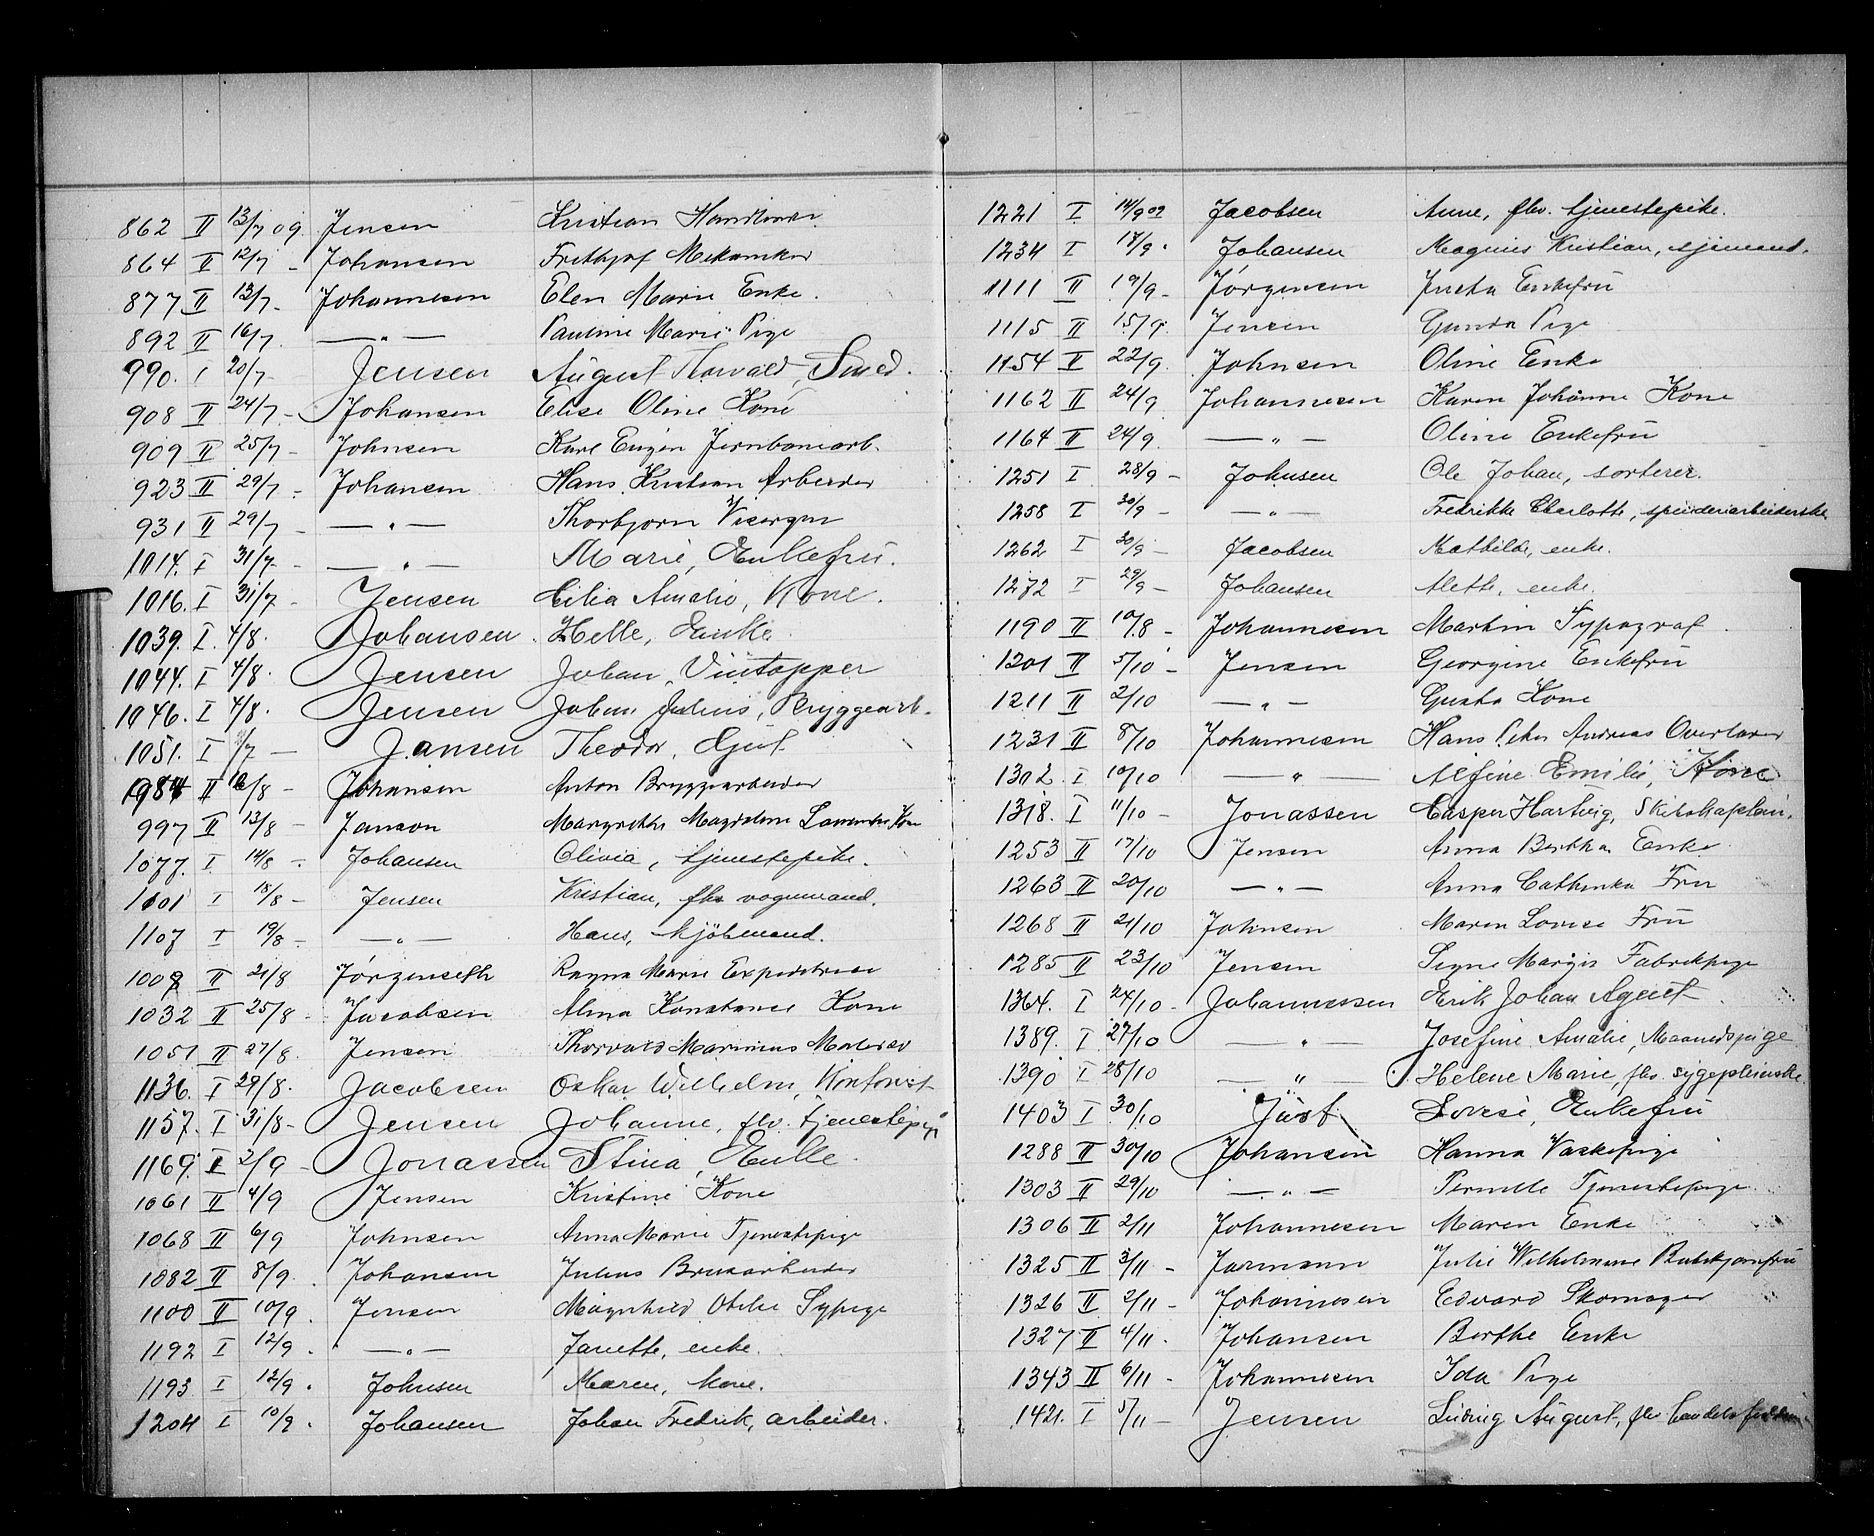 862 II 13/7 09 Jensen Kristian
864 II 12/7 - Johansen Frithjof Mekaniker
877 II 13/7 - Johannesen Elen Marie Enke.
892 II 16/7 . — „ — Pauline Marie Pige
990. I 20/7 - Jensen August Thorvald, Smed.
908 II 24/7 - Johansen Elise Oline Kone
909 II 25/7 - Johnsen Karl Eugen Jernbanearb.
923 II 29/7 - Johansen Hans Kristian Arbeider
931 II 29/7 - — „ — Thorbjørn Visergut
1014. I 31/7 - — „ — Marie, Enkefru.
1016. I 31/7 - Jensen Cilia Amalie, Kone.
1039. I. 4/8. Johansen. Helle, Enke.
1044. I 4/8. Jensen Johan, Vintapper
1046. I 4/8. Jensen Johan Julius, Bryggearb.
1051. I /7 — Jansen Theodor,
1984 II 12/8 - Johansen Anton Bryggearbeider
997 II 13/8 - Janson Margrethe Magdalene Kone
1077. I. 14/8 - Johansen Olivia, tjenestepike.
1101 I 18/8 - Jensen Kristian, fhv vognmand.
1107 I 19/8 - — „ — Hans, kjøbmand.
1009 II 21/8 Jørgenseth Ragna Marie Expeditrise
1032 II 25/8 - Jacobsen Alma Konstance Kone
1051 II 27/8. Jensen Thorvald Marinius
1136. I 29/8. Jacobsen Oskar Wilhelm, Kontorist
1157. I 31/8 - Jensen Johanne, flv. tjenestepige
1169. I 2/9 - Jonassen Stina, Enke.
1061 II 4/9 Jensen Kristine Kone
1068 II 6/9 Johnsen Anna Marie Tjenestepige
1082 II 8/9 . Johansen Julius Brusarbeider
1100 II 10/9 . Jensen Magnhild Otilie Sypige
1192 I 12/9 . — „ — Janette, enke.
1193 I 12/9 . Johnsen Maren, kone.
1204 I 10/9 . Johansen Johan Fredrik, arbeider.
1221 I 14/9 09 Jacobsen Anne, flv. tjenestepike.
1234 I 18/9 . Johansen Magnus Kristian, sjømand.
1111 II 19/9 - Jørgensen Justa Enkefru
1115 II 15/9. Jensen Gunda Pige
1154 II 22/9. Johnsen Oline Enke
1162 II 24/9 Johannesen Karen Johanne Kone
1164 II 24/9. — „ — Oline Enkefru
1251 I 28/9 - Johnsen Ole Johan, sorterer.
1258 I 30/9 - — „ — Fredrikke Charlotte, spinderiarbeiderske
1262 I 30/9 - Jacobsen Mathilde, enke.
1272 I 29/9 - Johansen Alette, enke.
1190 II 10/8 - Johannesen Martin Typograf
1201 II 5/10 - Jensen Georgine Enkefru
1211 II 2/10 — „ — Gusta Kone
1231 II 8/10 Johannesen Hans Peter Andreas Overlærer
1302. I 10/10 — „ — Alfine Emilie, Kone
1318. I 11/10 - Jonassen Casper Hartvig, Skibskaptein.
1253 II 17/10 Jensen Anna Bertha Enke
1263 II 20/10 — „ — Anna Cathinka Fru
1268 II 21/10 Johnsen Maren Lovise Fru
1285 II 23/10 Jensen Signe Margit Fabrikpige
1364. I 24/10 - Johannessen Erik Johan Agent
1389. I 27/10 — „ Josefine Amalie, Maanedspige
1390 I 28/10 — „ — Helene Marie, flv. sygepleierske
1403 I 30/10 Just Lovise, Enkefru
1288 II 30/10 Johansen Hanna Vaskepige
1303 II 29/10 — „ — Pernille Tjenestepige
1306 II 2/11 Johannesen Maren Enke
1325 II 3/11 - Jarmann Julie Wilhelmine
1326 II 2/11 - Johannesen Edvard Skomager
1327 II 4/11 . Johansen Berthe Enke
1343 II 6/11 - Johannesen Ida Pige
1421. I 5/11 - Jensen Ludvig August, flv